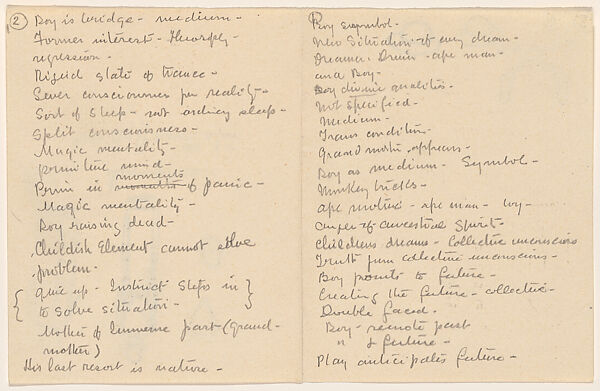 (2) Boy is bridge - medium -
Former interest - Theosophy -
regression -
Rigid state of trance -
Sever consciousness from reality -
Sort of sleep - not ordinary sleep -
Split consciousness -
Magic mentality -
primitive mind -
Born in moments of panic -
Magic mentality -
Boy raising dead -
Childish Element cannot solve
problem -
Give up - Instinct steps in
to solve situation -
Mother of Immense past (Grand-
mother)
His last resort is nature -
Boy symbol -
New Situation of every dream -
Dreamer - ape man -
and Boy -
Boy divine qualities -
Not specified -
Medium -
Trans condition -
Grand mother appears -
Boy as medium - Symbol -
Monkey tricks -
ape mother - ape man - boy -
of ancestral Spirit -
Childrens dreams - Collective unconscious
Truth from collective unconscious -
Boy points to future -
Creating the future - collective -
Double faced.
Boy - remote past
" & future -
Play anticipates future -